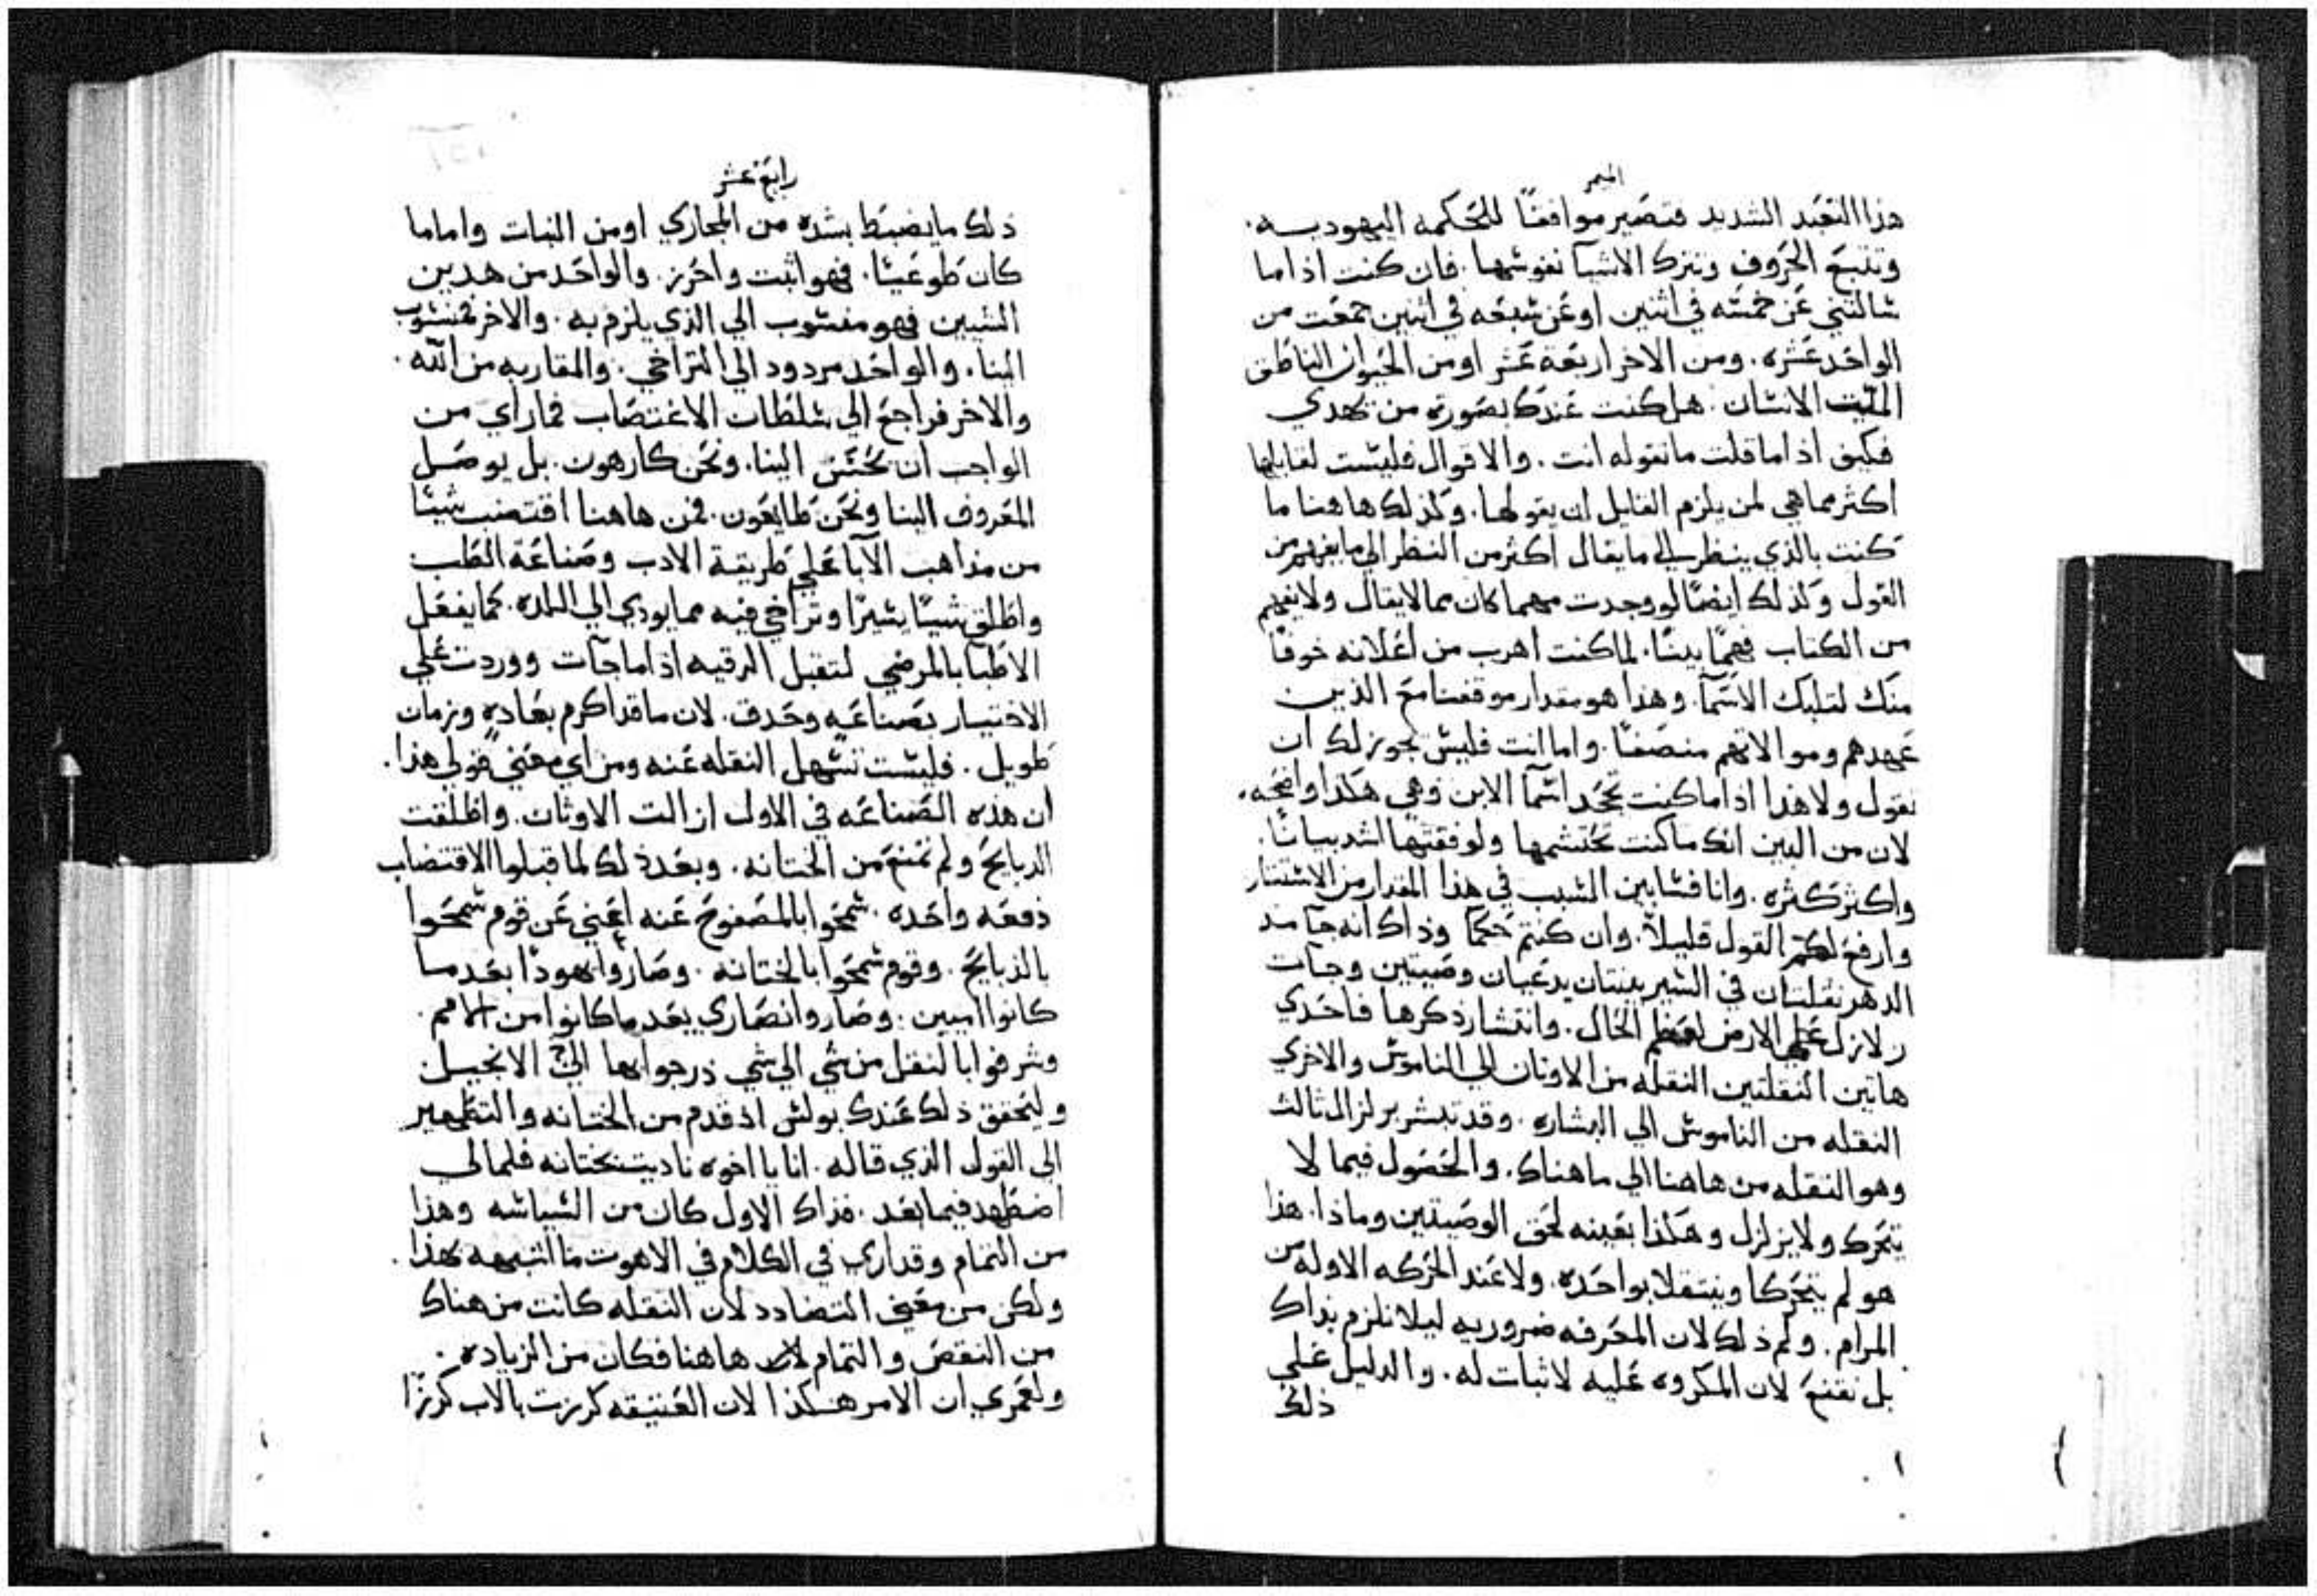 الميمر
هذا التعبد الشديد فتصير موافقًا للحكمه اليهوديه.
وتتبع الحروف وتترك الاشيآ نفوسها. فان كنت اذا ما
سالتني عن خمسه في اثنين او عن سبعه في اثنين جمعت من
الواحد عشره. ومن الاخر اربعة عشر او من الحيوان الناطق
الميت الانسان. هل كنت عندك بصورة من يهدي
فكيف اذا ما قلت ما تقوله انت. والاقوال فليست لقايلها
اكثر مما هي لمن يلزم القايل ان يقولها. وكذلك هاهنا ما
كنت بالذي ينظر الى ما يقال اكثر من النظر الي ما يفهم من
القول وكذلك ايضًا لو وجدت مهما كان مما لا يقال ولا يفهم
من الكتاب فهمًا بينًا. لما كنت اهرب من اعلانه خوفًا
منك لتلبك الاسمآ. وهذا هو مقدار موقفنا مع الذين
عهدهم وموالاتهم منصفًا. واما انت فليس يجوز لك ان
تقول ولا هذا اذا ما كنت تجحد اسمآ الابن وهي هكذا واضحه.
لان من البين انك ما كنت تحتشمها ولو فقتها اشد بيانًا.
واكثر كثره. وانا فسابين السبب في هذا المقدار من الاستتار
وارفع لكم القول قليلاً. وان كنتم حكمآ وذاك انه جآ مند
الدهر نقلتان في السير بينتان يدعيان وصيتين وجآت
زلازل على الارض لعظم الحال. وانتشار ذكرها فاحدي
هاتين النقلتين النقله من الاوثان الى الناموس والاخري
النقله من الناموس الي البشاره. وقد تبشر بزلزال ثالث
وهو النقله من هاهنا الي ما هناك. والحصول فيما لا
يتحرك ولا يزلزل وهكذا بعينه لحق الوصيتين وماذا. هذا
هو لم يتحركا وينتقلا بواحدة. ولا عند الحركه الاولة من
المرام. ولم ذلك لان المعرفه ضروريه ليلا نلزم بذاك
بل نقنع لان المكروه عليه لا ثبات له. والدليل علي
ذلك
رابع عشر
ذلك ما يضبط بشده من المجاري او من النبات واما ما
كان طوعيًا. فهو اثبت واحرز. والواحد من هدين
الشيين فهو منسوب الي الذي يلزم به. والاخر فمنسوب
الينا. والواحد مردود الي التراخي. والمقاربه من الله.
والاخر فراجع الي سلطات الاغتصاب فما راي من
الواجب ان يحسن الينا. ونحن كارهون. بل يوصل
المعروف الينا ونحن طايعون. فمن هاهنا اقتضب شيًا
من مذاهب الآبا علي طريقة الادب وصناعة الطب
واطلق شيًا يسيرًا وتراخي فيه مما يودي الي اللده. كما يفعل
الاطبا بالمرضي لتقبل الرقيه اذا ما جآت ووردت علي
الاختيار بصناعه وحدق. لان ما قد اكرم بعادهٍ وزمان
طويل. فليست تسهل النقله عنه ومن اي معني قولي هذا.
ان هذه الصناعه في الاول ازالت الاوثان. واطلقت
الدبايح ولم تمنع من الختانه. وبعد ذلك لما قبلوا الاقتضاب
دفعه واحده. سمحوا بالمصفوح عنه اعني عن قوم سمحوا
بالذبايح. وقوم سمحوا بالختانه. وصاروا يهودًا بعد ما
كانوا اميين. وصاروا نصاري بعد ما كانوا من الامم.
وشرفوا بالنقل من شي الي شي ذرجوا بها الى الانجيل
وليحقق ذلك عندك بولس اذ قدم من الختانه والتطهير
الى القول الذي قاله. انا يا اخوه ناديت بختانه فلما لي
اضطهد فيما بعد. فذاك الاول كان من السياسه وهذا
من التمام وقد اري في الكلام في الاهوت ما اشبهه بهذا.
ولكن من معني التضادد لان النقله كانت من هناك
من النقص والتمام لان هاهنا فكان من الزياده.
ولعمري ان الامر هكذا لان العتيقه كرزت بالاب كرزًا